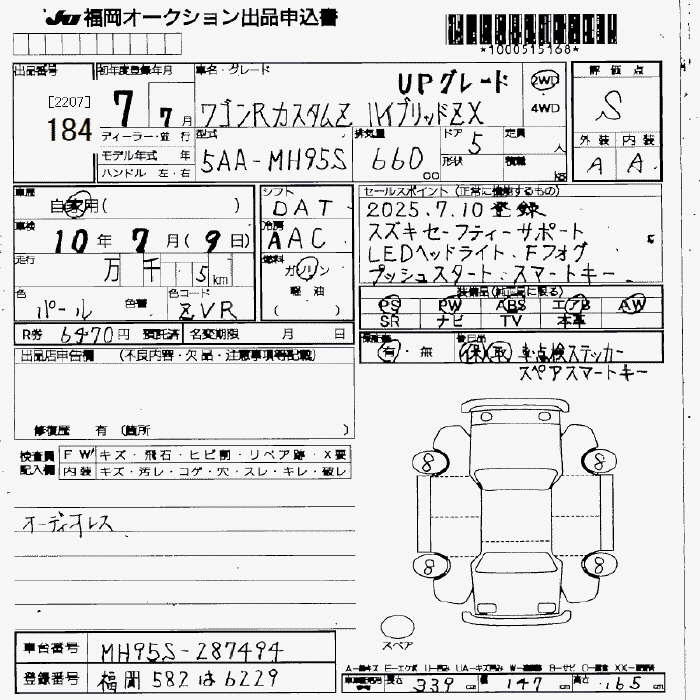 JU 福岡オークション出品申込書
*1000515168*
出品番号
[2207]
184
初年度登録年月
7 7月
ディーラー・並行
モデル年式 年
ハンドル 左・右
車名・グレード
UPグレード
ワゴンRカスタムZ ハイブリッドZX
2WD
4WD
型式
5AA-MH95S
排気量
660 cc
ドア
5
形状
定員
人
積載
kg
評価点
S
外装 内装
A A
車歴
自家用( )
車検
10年7月(9日)
走行
万 千 5km
色
パール
色替
色コード
ZVR
シフト
DAT
冷房
AAC
燃料
ガソリン
軽油
( )
セールスポイント(正常に機能するもの)
2025.7.10登録
スズキセーフティーサポート
LEDヘッドライト.Fフォグ
プッシュスタート.スマートキー
装備品(純正品に限る)
PS PW ABS エアB AW
SR ナビ TV 本革
R券 6470円 預託済 名変期限 月 日
保証書
有・無
後日品
保 取 車点検ステッカー
スペアスマートキー
出品店申告欄 (不良内容・欠品・注意事項等記載)
修復歴 有 (箇所 )
検査員
記入欄
FW キズ・飛石・ヒビ割・リペア跡・X要
内装 キズ・汚レ・コゲ・穴・スレ・キレ・破レ
オーディオレス
8
8
8
8
スペア
車台番号 MH95S-287494
登録番号 福岡 582 は 6229
長さ 339cm 幅 147cm 高さ 165cm